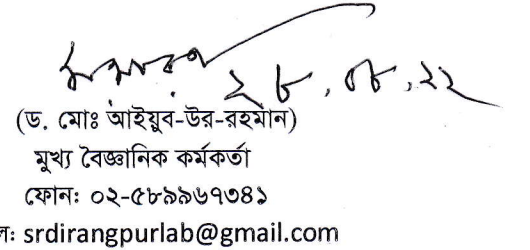 ২৮.০৮.২২
(ড. মোঃ আইয়ুব-উর-রহমান)
মুখ্য বৈজ্ঞানিক কর্মকর্তা
ফোন: ০২-৫৮৯৯৬৭৩৪১
ল: srdirangpurlab@gmail.com